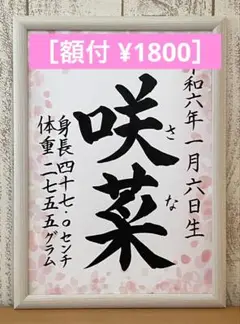 ［額付 ¥1800］
和六年一月六日生
咲菜
さな
身長四十七.0センチ
体重二七五五グラム